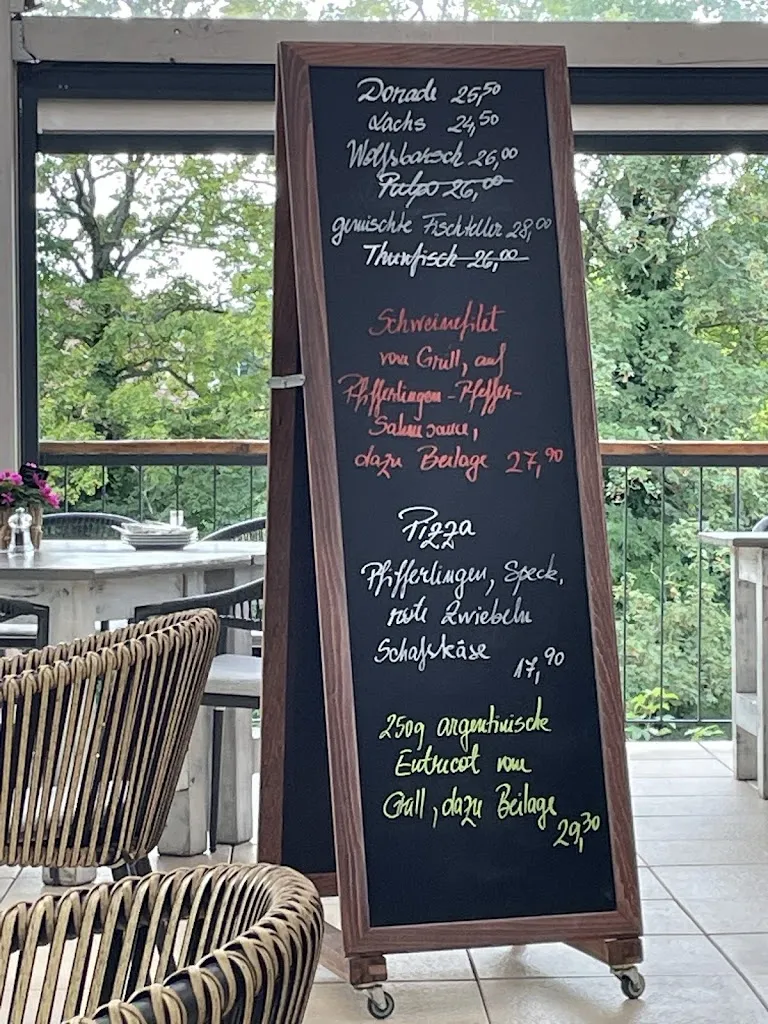 Dorade 25,50
Lachs 24,50
Wolfsbarsch 26,00
Pulpo 26,00
gemischte Fischteller 28,00
Thunfisch 26,00
Schweinefilet
vom Grill, auf
Pfifferlingen-Pfeffer-
Sahnesauce,
dazu Beilage 27,90
Pizza
Pfifferlingen, Speck,
rote Zwiebeln
Schafskäse
17,90
250g argentinische
Entrecot vom
Grill, dazu Beilage
29,30